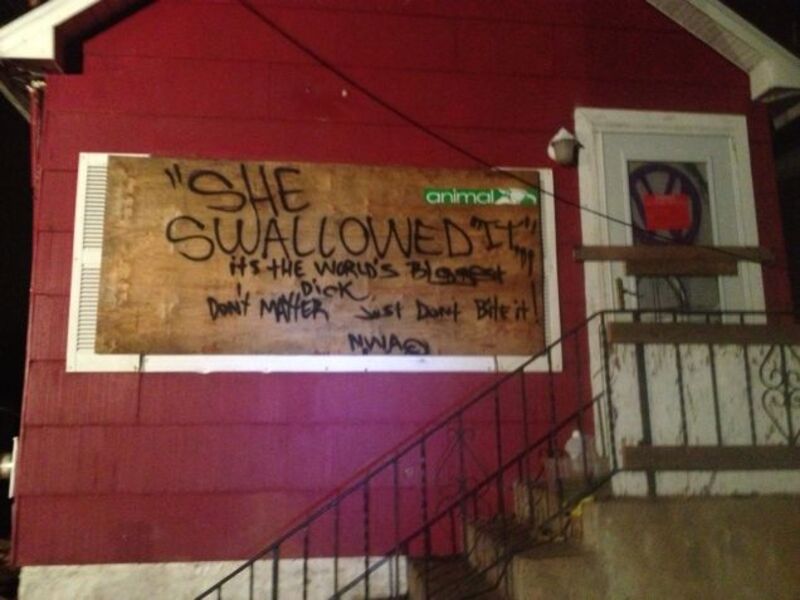 animal
"SHE
SWALLOWED "IT"
it's THE WORLD'S BIGGEST
DICK
DON'T MATTER JUST DON'T BITE it!
NWA©